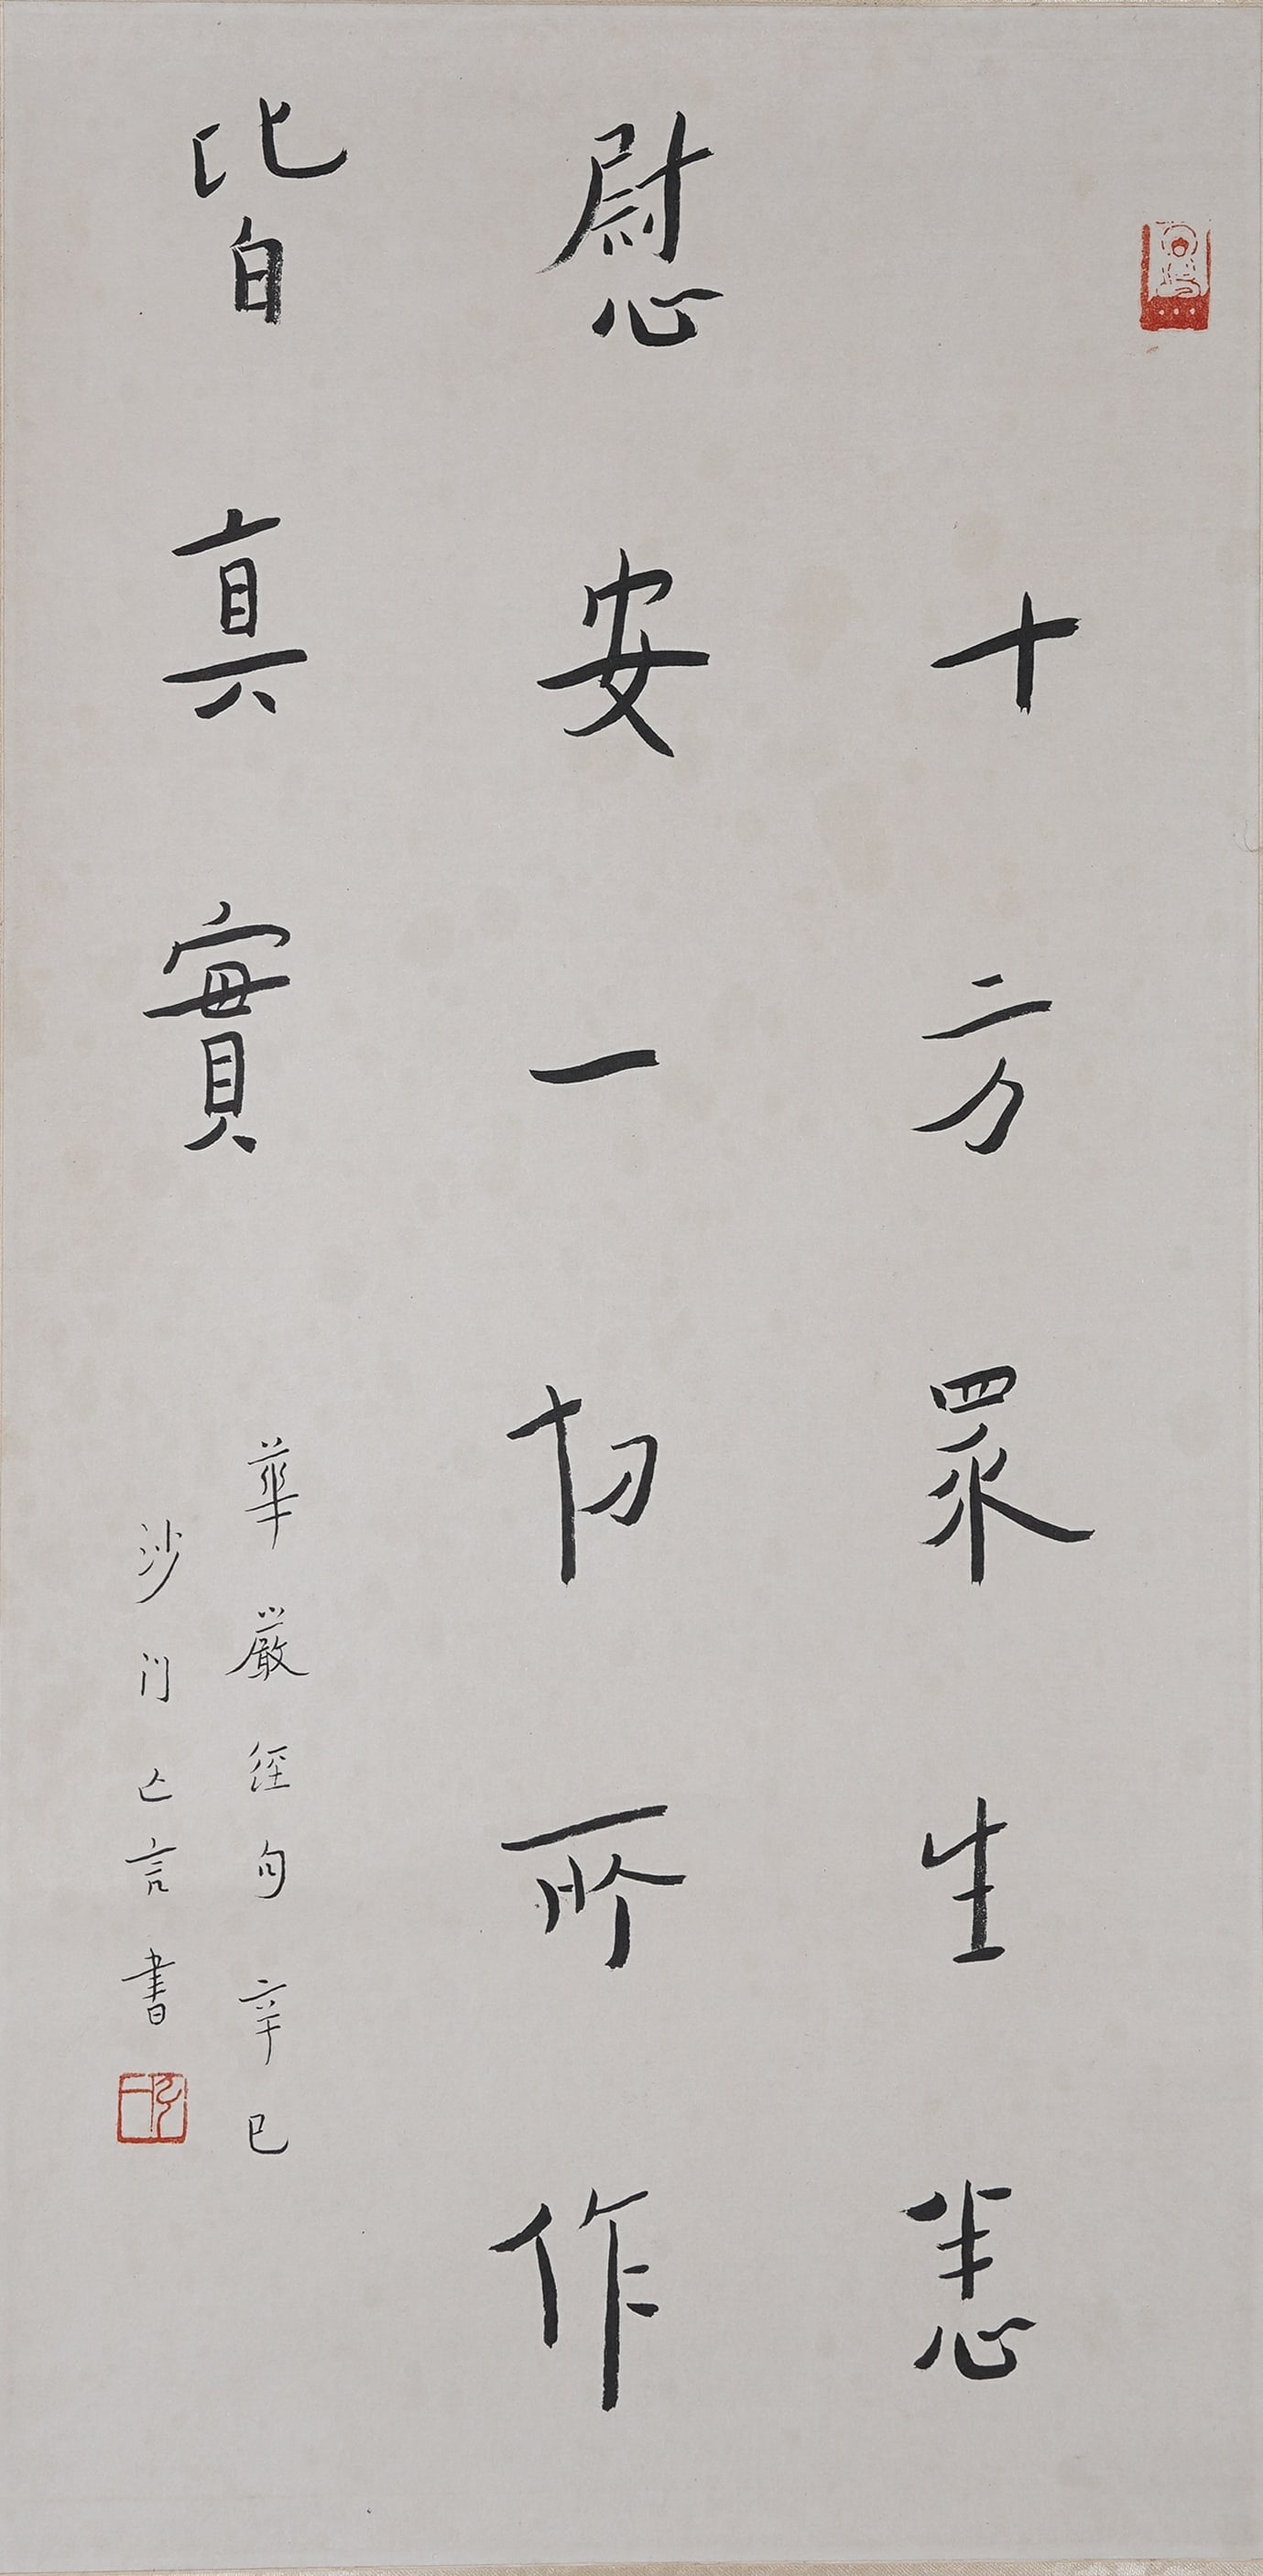 十方眾生悉
慰安一切所作
皆真實
華嚴經句辛巳
沙門亡言書